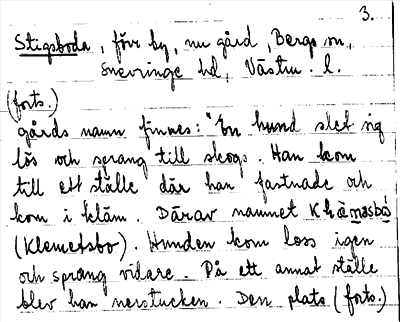 3.
Stigsboda, förr by, nu gård, Bergs sn,
Snevringe hd, Västm. l.
(forts.)
gårds namn finnes: "En hund slet sig
lös och sprang till skogs. Han kom
till ett ställe där han fastnade och
kom i kläm. Därav namnet
(Klemetsbo). Hunden kom loss igen
och sprang vidare. På ett annat ställe
blev han nerstucken. Den plats (forts.)